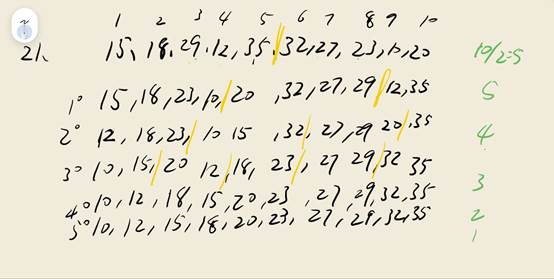 1 2 3 4 5 6 7 8 9 10
21. 15, 18, 29, 12, 35, 32, 27, 23, 10, 20 10/2=5
1° 15, 18, 23, 10, 20, 32, 27, 29, 12, 35 5
2° 12, 18, 23, 10 15, 32, 27, 29 20, 35 4
3° 10, 15, 20 12, 18, 23 27 29, 32 35 3
4° 10, 12, 18, 15, 20, 23, 27, 29, 32, 35 2
5° 10, 12, 15, 18, 20, 23, 27, 29, 32, 35 1